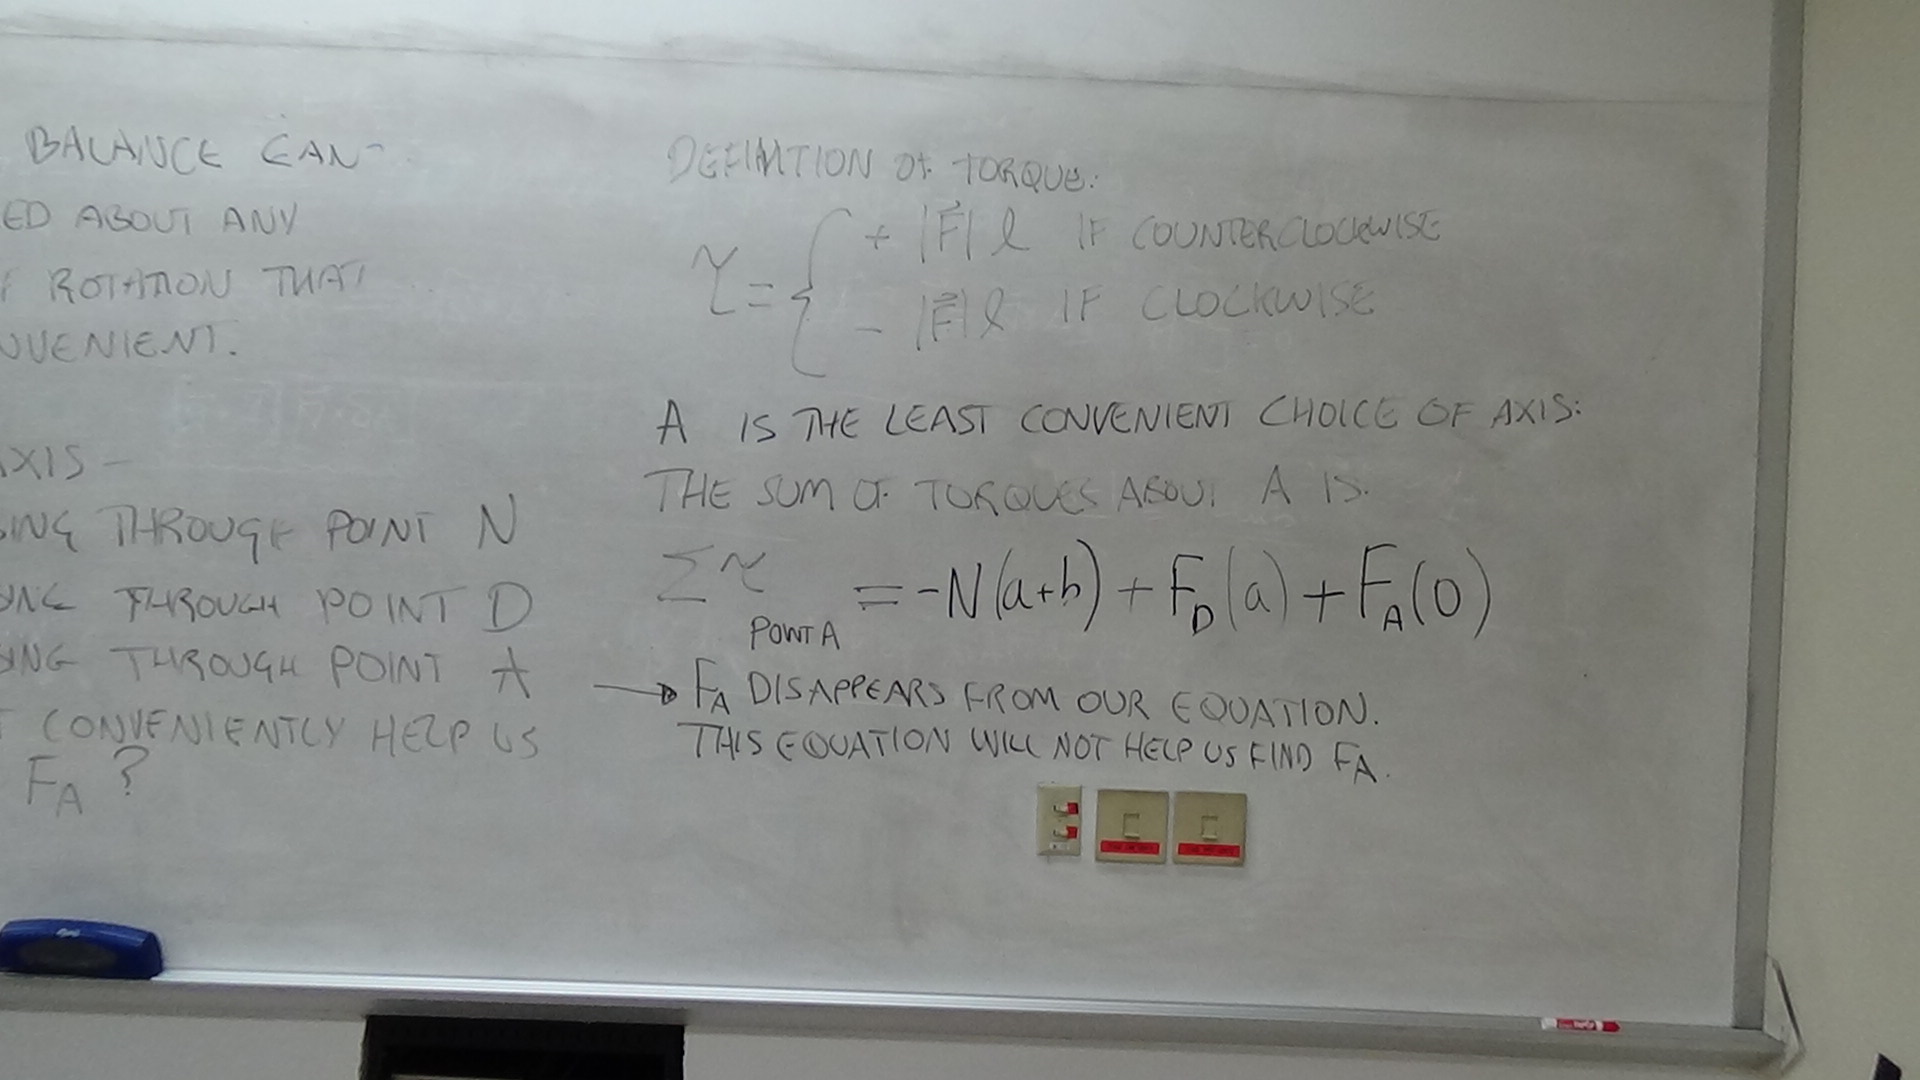 BALANCE CAN
ED ABOUT ANY
F ROTATION THAT
NVENIENT.
AXIS -
SING THROUGH POINT N
ING THROUGH POINT D
ING THROUGH POINT A
T CONVENIENTLY HELP US
F_A ?
DEFINITION OF TORQUE:
τ = { + |F⃗| ℓ IF COUNTERCLOCKWISE
- |F⃗| ℓ IF CLOCKWISE
A IS THE LEAST CONVENIENT CHOICE OF AXIS:
THE SUM OF TORQUES ABOUT A IS:
Στ POINT A = -N(a+b) + F_D(a) + F_A(0)
→ F_A DISAPPEARS FROM OUR EQUATION.
THIS EQUATION WILL NOT HELP US FIND F_A.